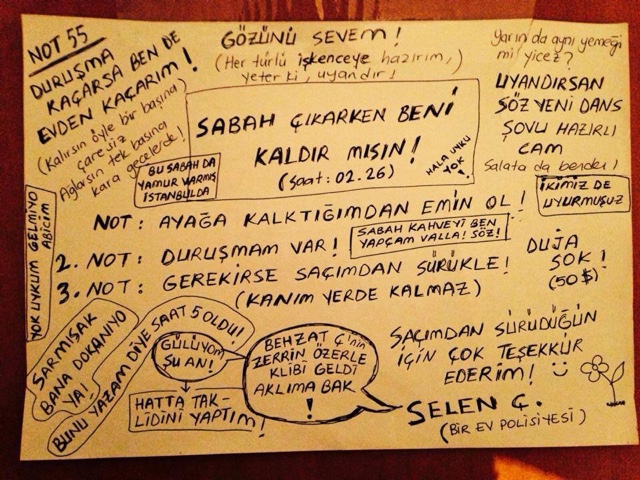 NOT 55
DURUŞMA
KAÇARSA BEN DE
EVDEN KAÇARIM!
(Kalırsın öyle bir başına
çaresiz
Ağlarsın tek başına
kara gecelerde!
GÖZÜNÜ SEVEM!
(Her türlü işkenceye hazırım,
yeter ki, uyandır!)
Yarın da aynı yemeği
mi yicez?
UYANDIRSAN
SÖZ YENİ DANS
ŞOVU HAZIRLI
CAM
Salata da benden!
SABAH ÇIKARKEN BENİ
KALDIR MISIN!
(Saat: 02.26)
HALA UYKU
YOK!
BU SABAH DA
YAMUR VARMIŞ
İSTANBULDA
İKİMİZ DE
UYURMUŞUZ
YOK UYKUM GELMİYO
ABİCİM
NOT: AYAĞA KALKTIĞIMDAN EMİN OL!
SABAH KAHVEYİ BEN
YAPÇAM VALLA! SÖZ!
2. NOT: DURUŞMAM VAR!
3. NOT: GEREKİRSE SAÇIMDAN SÜRÜKLE!
(KANIM YERDE KALMAZ)
DUJA
SOK!
(50$)
SARMISAK
BANA DOKANIYO
YA!
BUNU YAZAM DİYE SAAT 5 OLDU!
GÜLÜYOM
ŞU AN!
HATTA TAK-
LİDİNİ YAPTIM!
BEHZAT Ç'nin
ZERRİN ÖZERLE
KLİBİ GELDİ
AKLIMA BAK
!
SAÇIMDAN SÜRÜDÜĞÜN
İÇİN ÇOK TEŞEKKÜR
EDERİM!
SELEN Ç.
(BİR EV POLİSİYESİ)